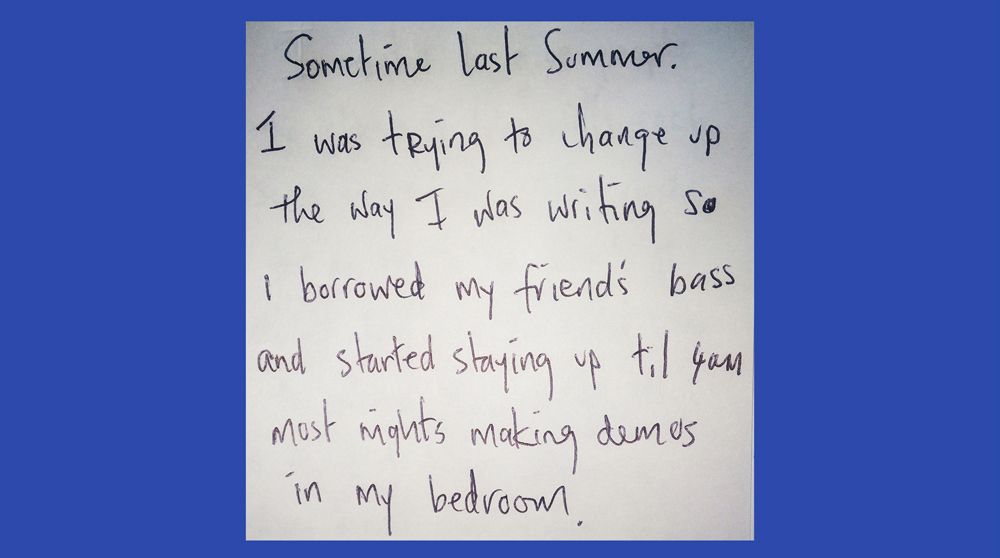 Sometime last Summer.
I was trying to change up
the way I was writing so
i borrowed my friend's bass
and started staying up til 4am
most nights making demos
in my bedroom.